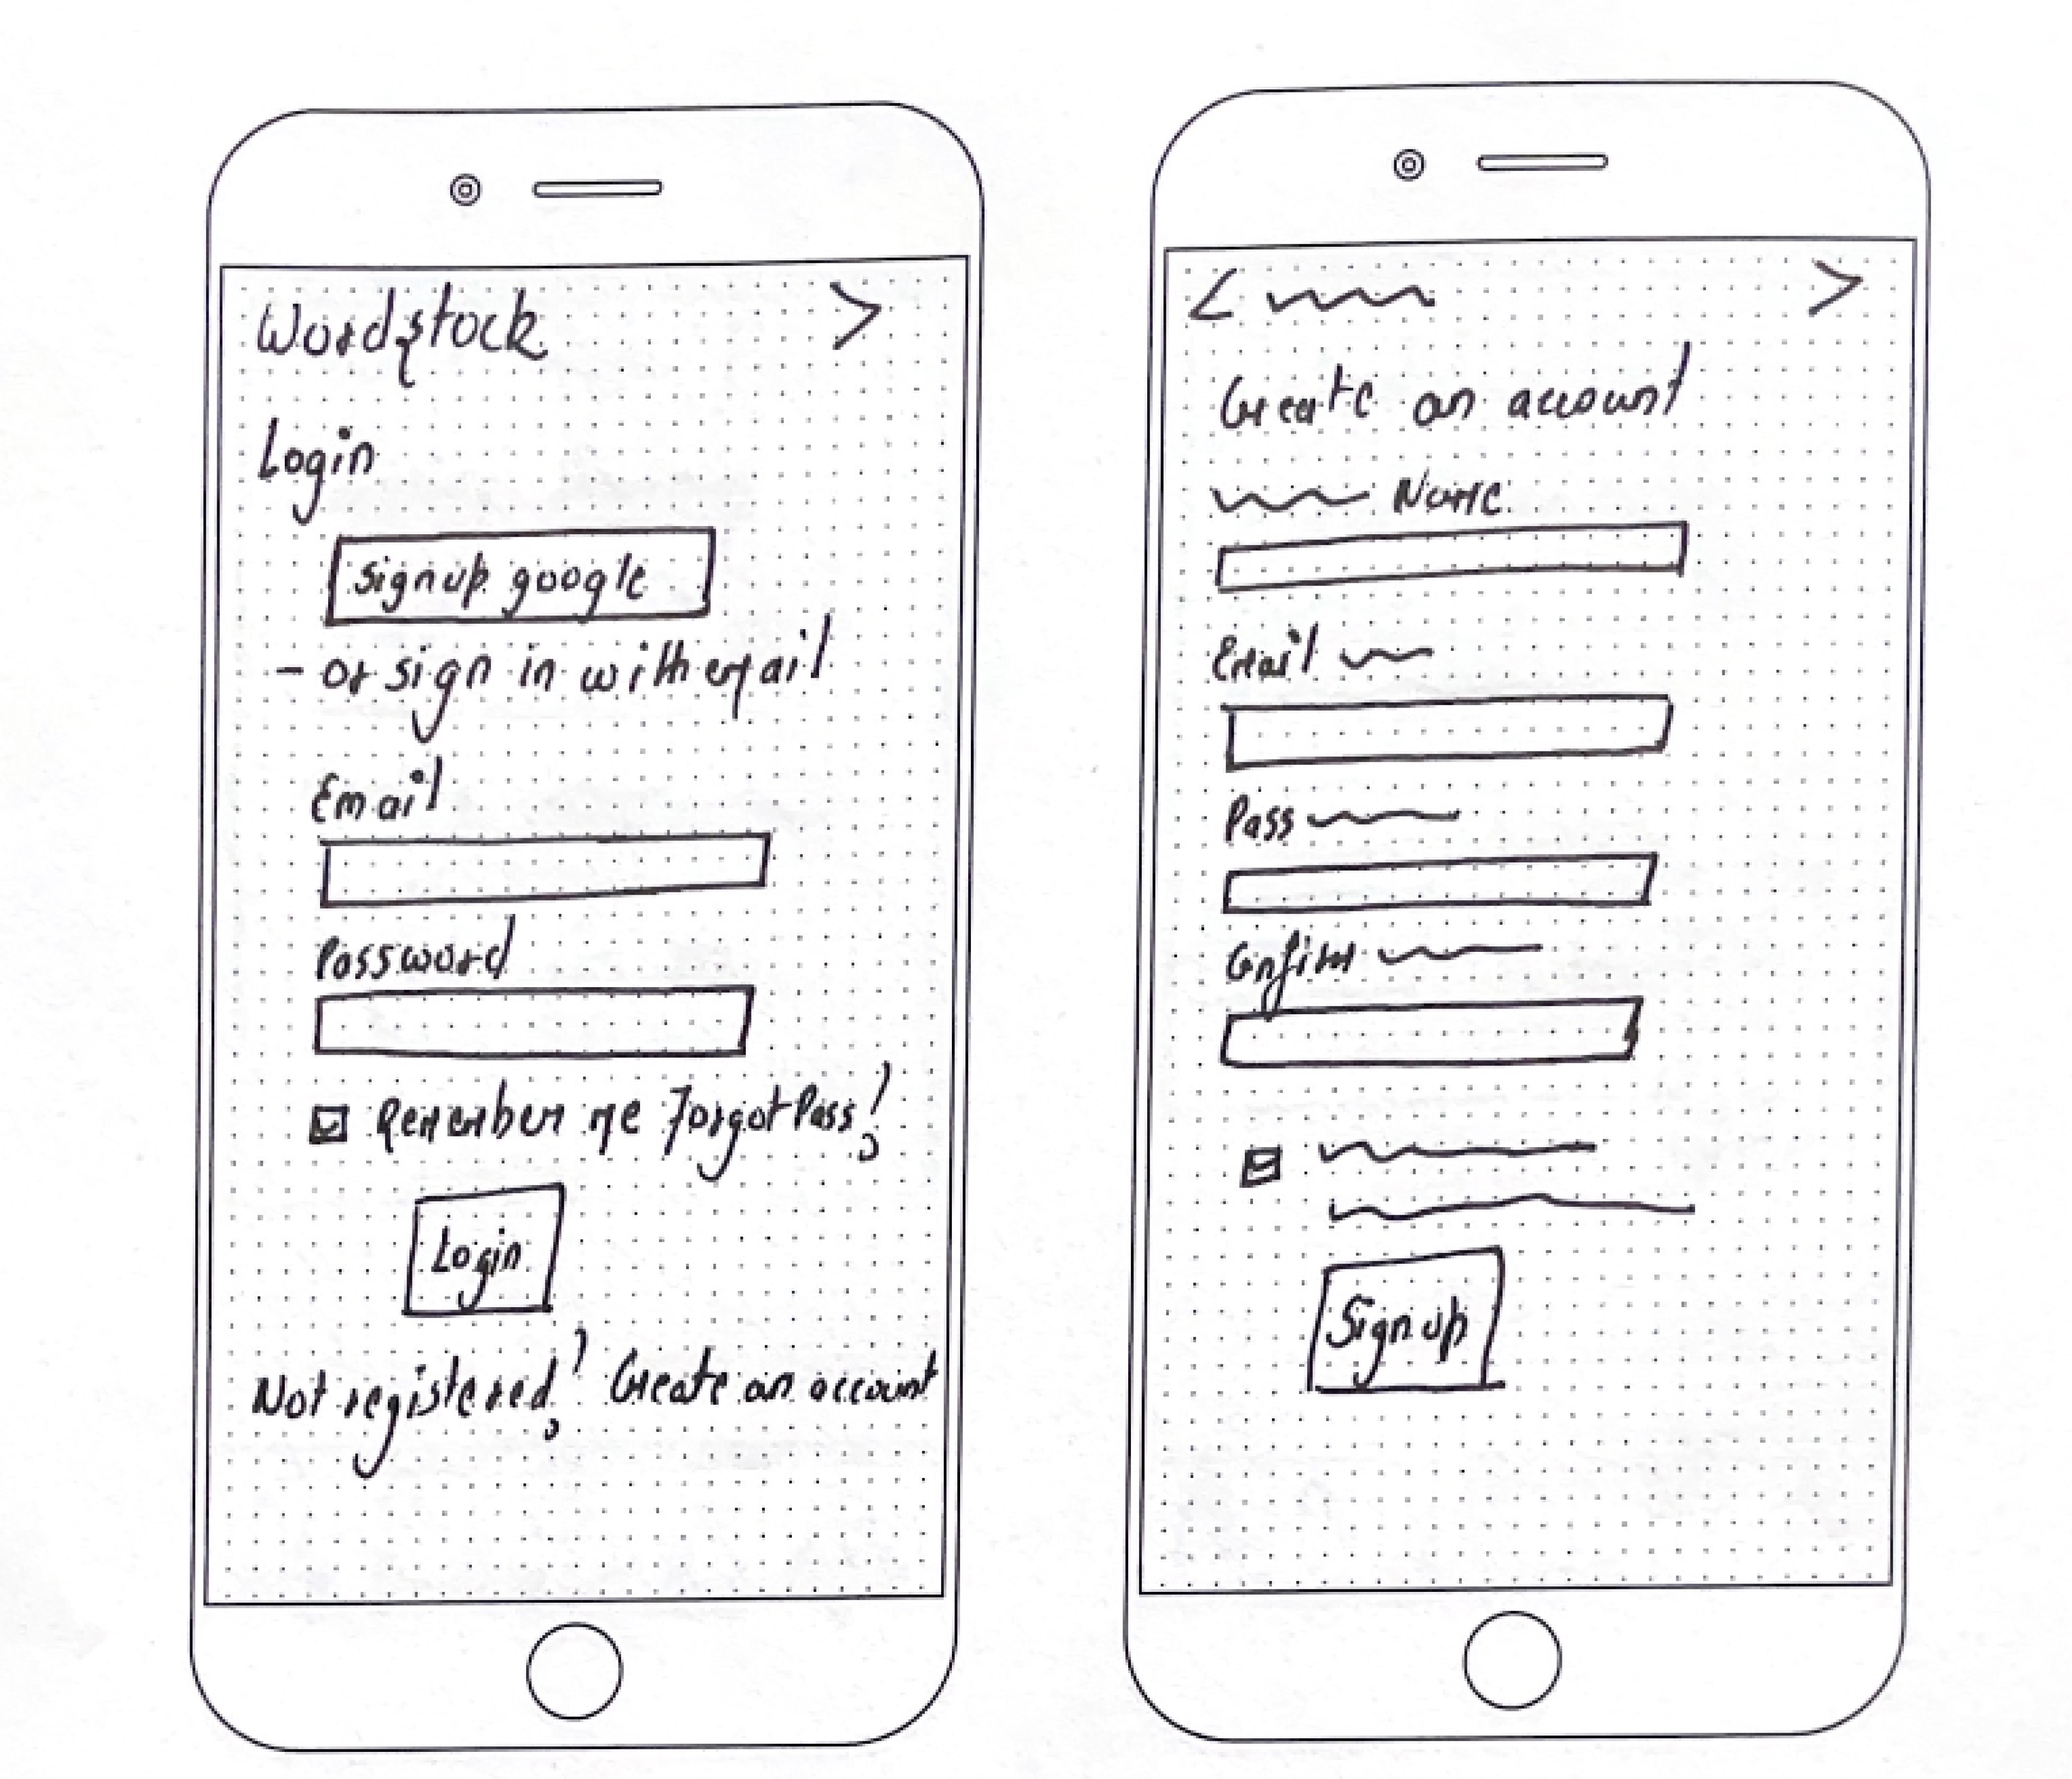 Wordstock >
Login
Signup google
- or sign in with email
Email
Password
Remember me Forgot Pass?
Login
Not registered? Create an account
< >
Create an account
Name
Email
Pass
Confirm
Signup